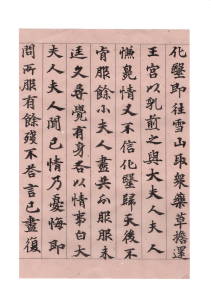 化醫即往雪山取衆藥草擔還
王宮以乳煎之與大夫人夫人
情又不信化醫歸天後不
肯服餘小夫人盡共分服服未
逕久尋覺有身各以情事白大
夫人夫人聞已情乃憂悔即
問所服有餘殘不答言已盡復